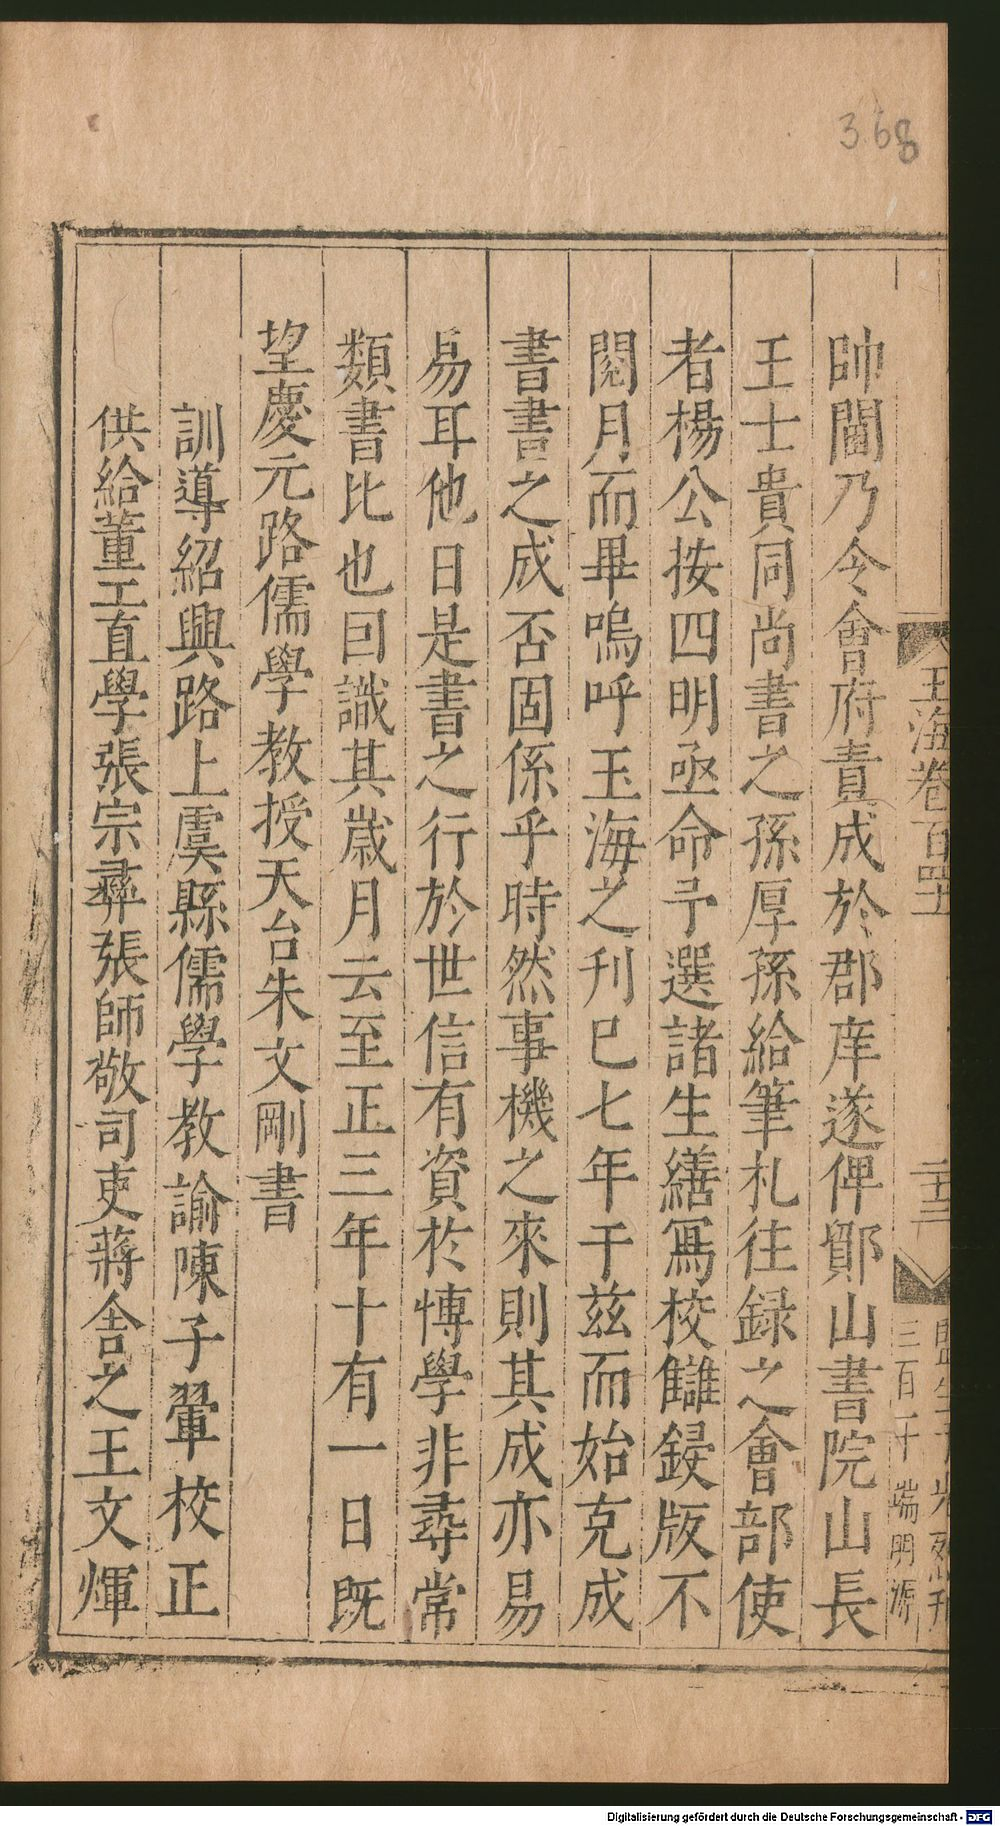 368
玉海卷百四
三百二十 端明 源
帥閫乃令會府責成於郡庠遂俾鄮山書院山長
王士貴同尚書之孫厚孫給筆札往録之會部使
者楊公按四明亟命予選諸生繕寫校讎鋟版不
閱月而畢嗚呼玉海之刊巳七年于兹而始克成
書書之成否固係乎時然事機之來則其成亦易
易耳他日是書之行於世信有資於博學非尋常
類書比也囙識其歲月云至正三年十有一日既
望慶元路儒學教授天台朱文剛書
訓導紹興路上虞縣儒學教諭陳子翬校正
供給董工直學張宗彝張師敬司吏蔣舍之王文煇
Digitalisierung gefördert durch die Deutsche Forschungsgemeinschaft - DFG